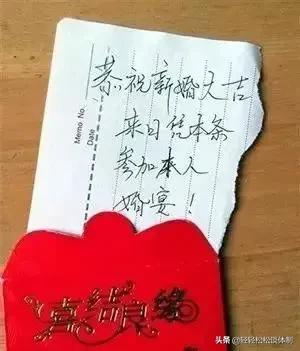 Memo No.
Date
恭祝新婚大吉
来日凭本条
参加本人
婚宴！
喜结良缘
头条 @轻轻松松谈体制